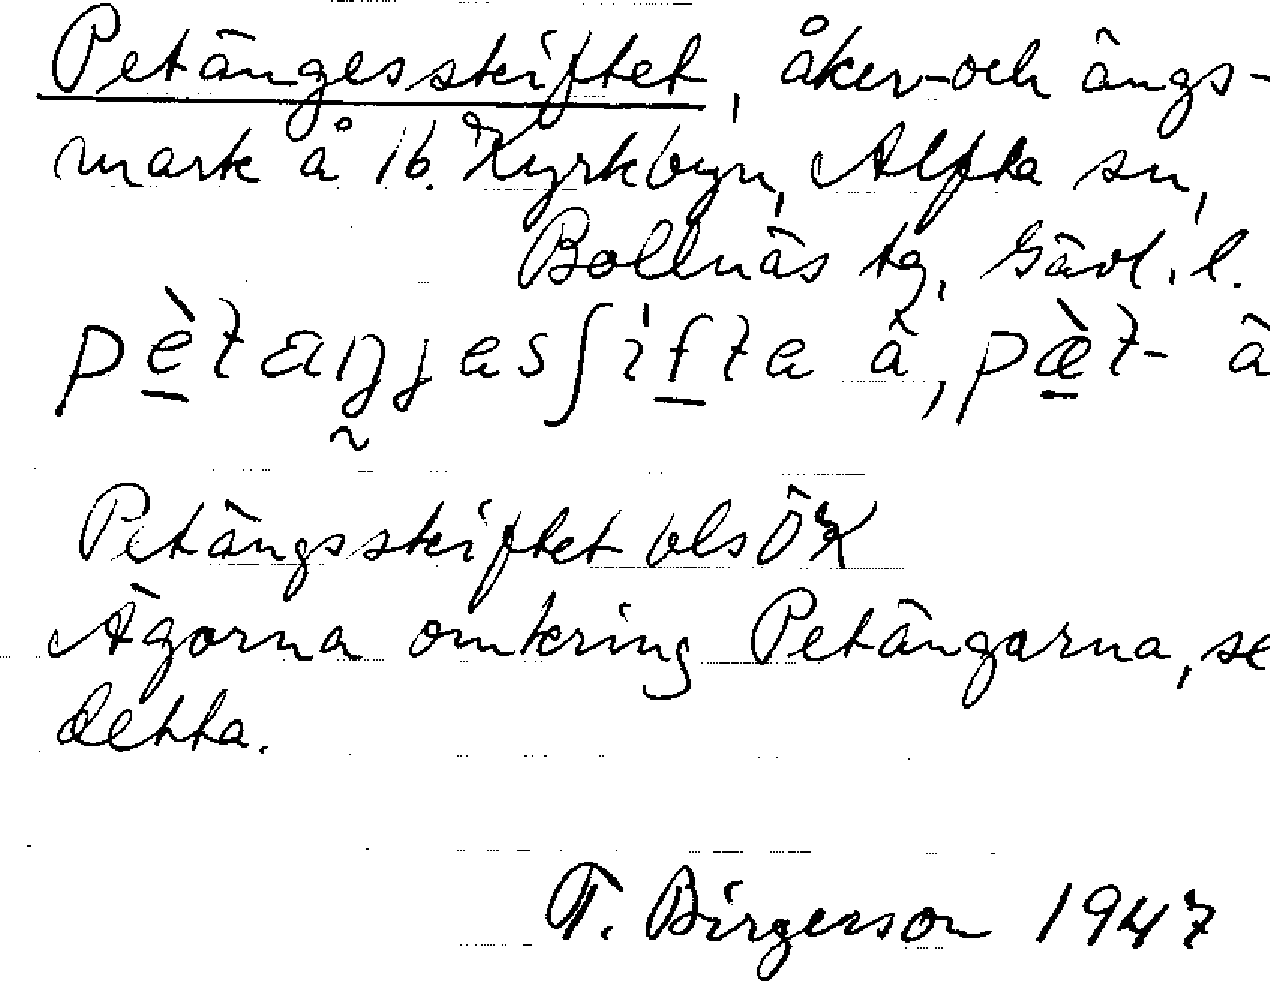 Petängesskiftet, åker- och ängs-
mark å 16. Kyrkbyn, Alfta sn,
Bollnäs tg, Gävl. l.
pètaŋjesʃifta â, pæ̀t- â
Petängsskiftet bls ÖK
Ägorna omkring Petängarna, se
detta.
T. Birgerson 1947